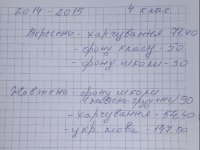 2014 - 2015 4 клас
Вересень - харчування 71,40
- фонд класу - 50
- фонд школи - 30
Жовтень - фонду школи
(жовтень, грудень) 90
- харчування - 54,40
- укр. мова - 147.00